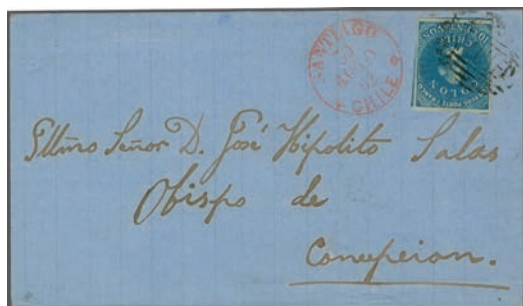 SANTIAGO
CHILE
COLON
CHILE
Illmo Señor D. José Hipolito Salas
Obispo de
Concepcion.